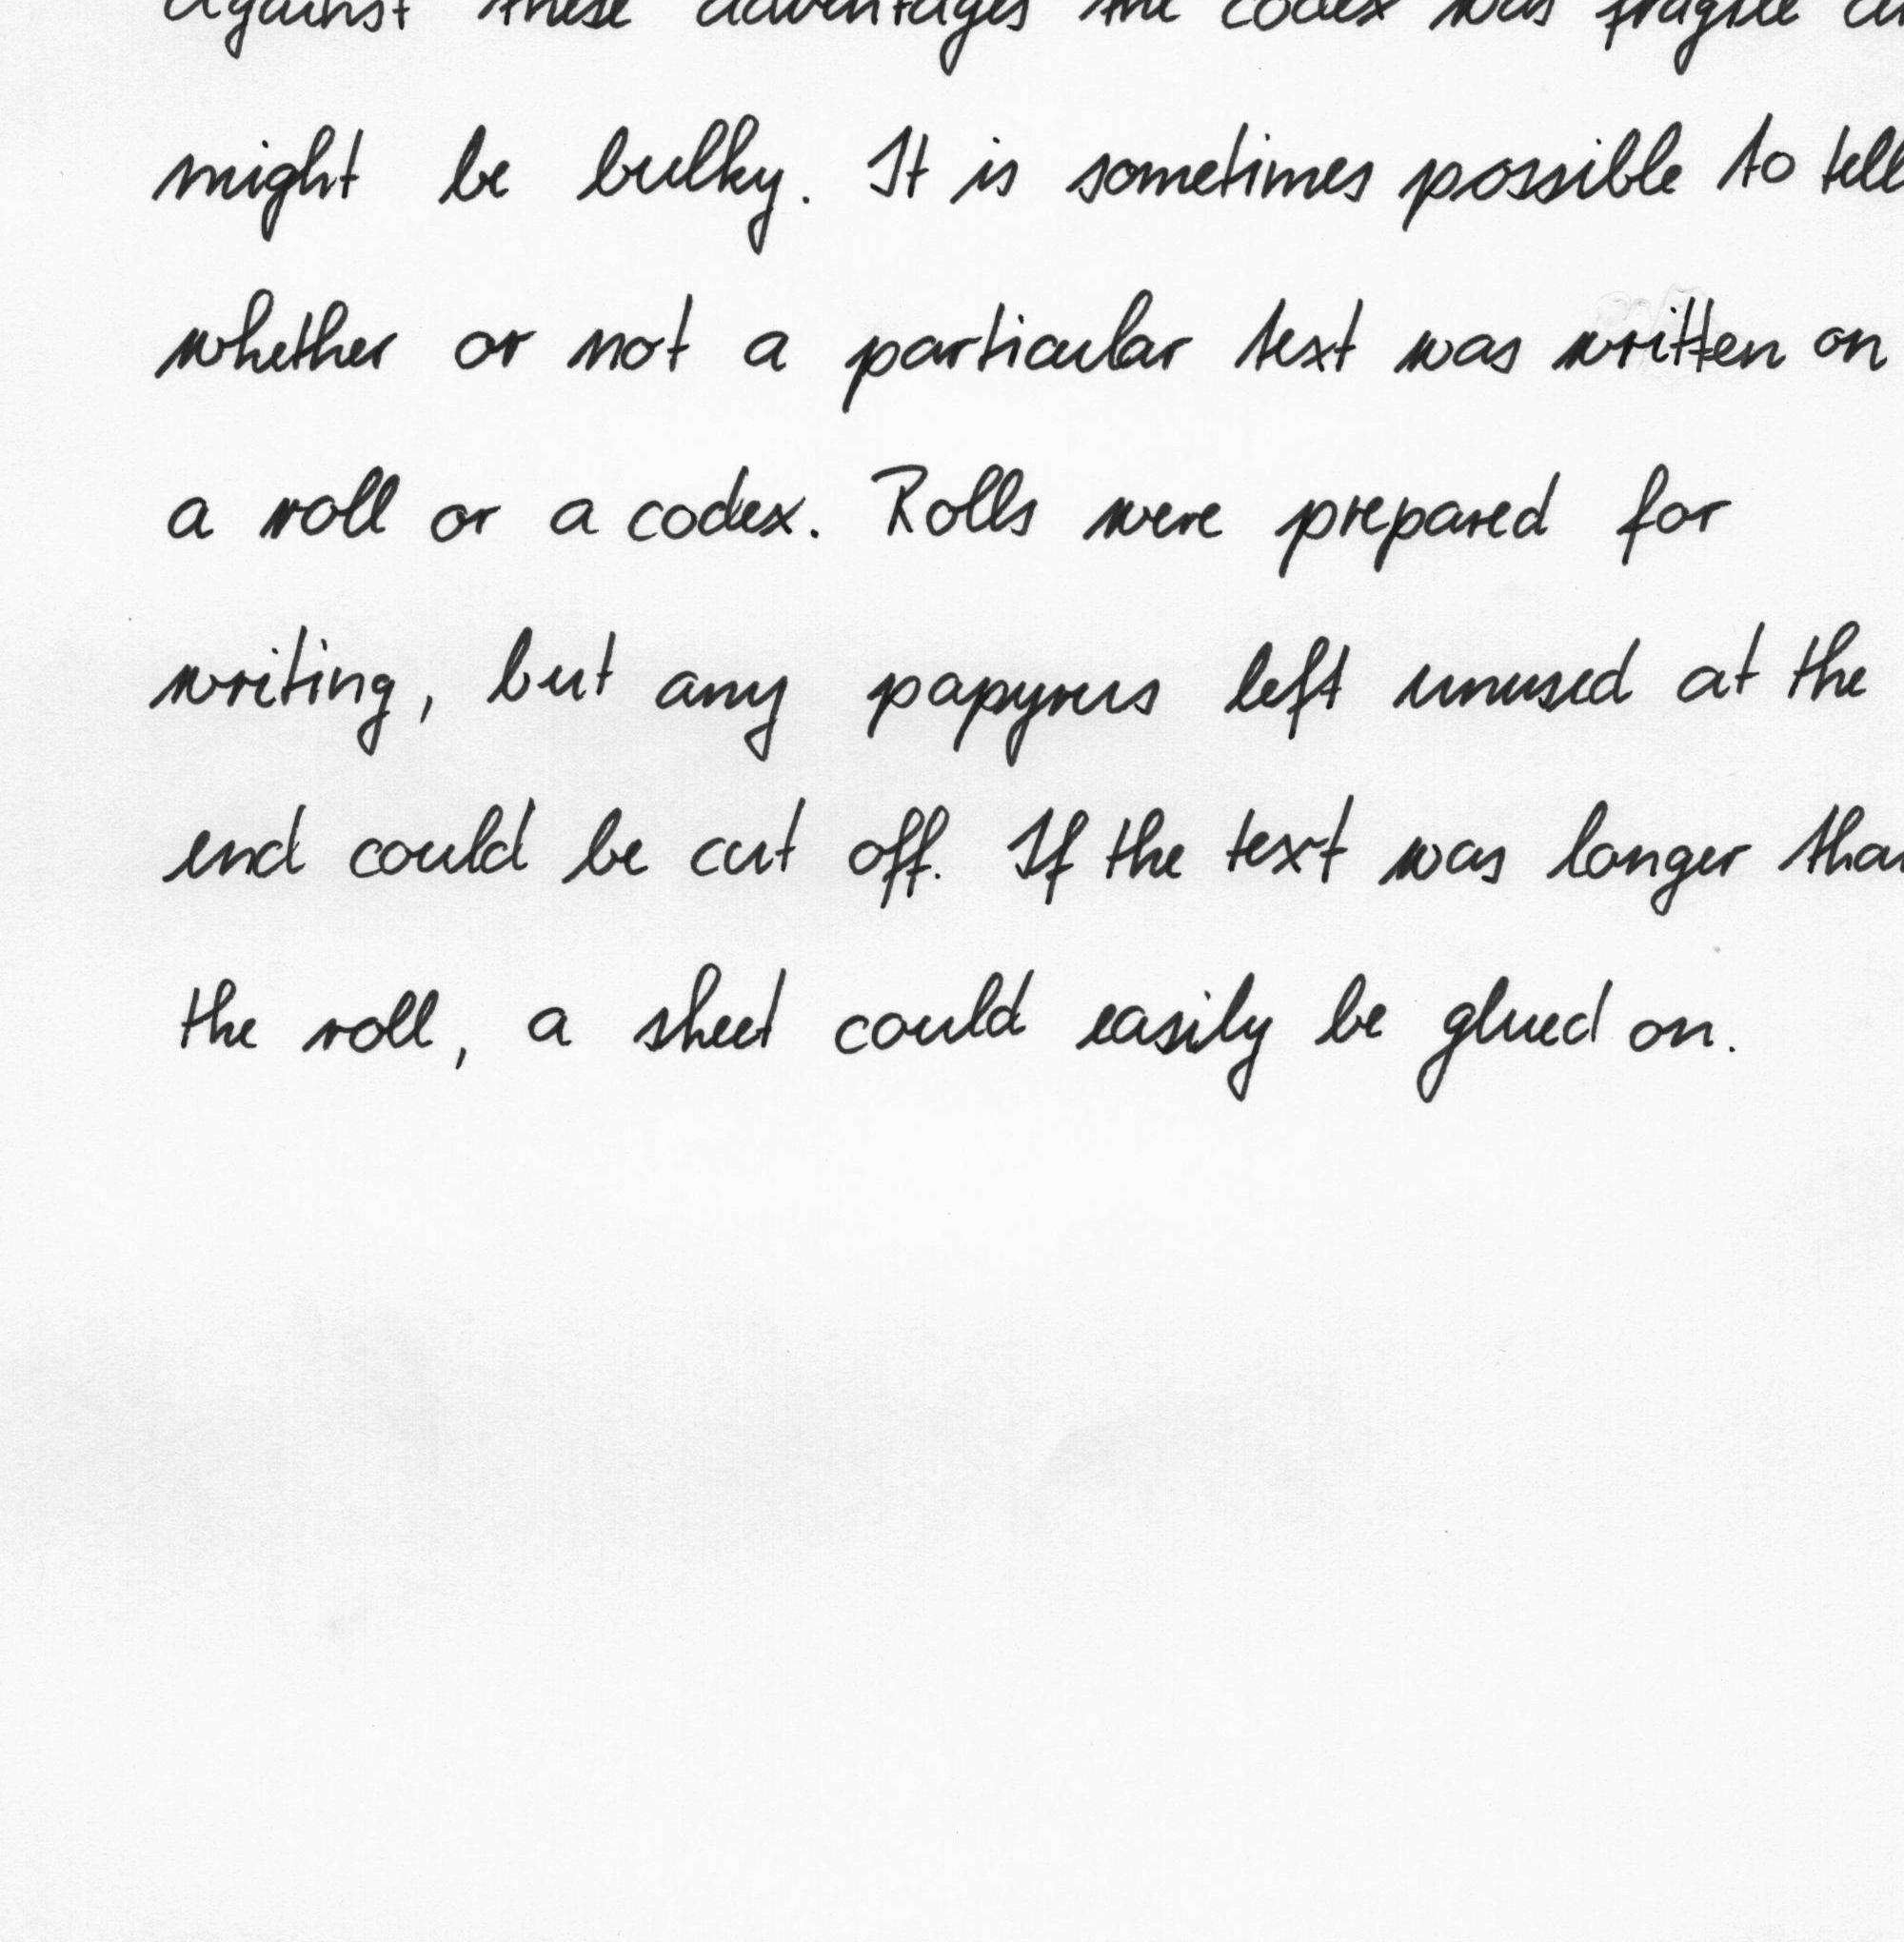 against these advantages the codex was fragile
might be bulky. It is sometimes possible to tell
whether or not a particular text was written on
a roll or a codex. Rolls were prepared for
writing, but any papyrus left unused at the
end could be cut off. If the text was longer than
the roll, a sheet could easily be glued on.